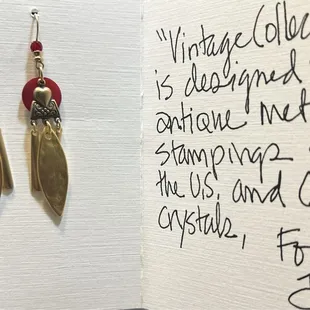 "Vintage Collec
is designed
antique met
stampings
the U.S. and
crystals,
Fo